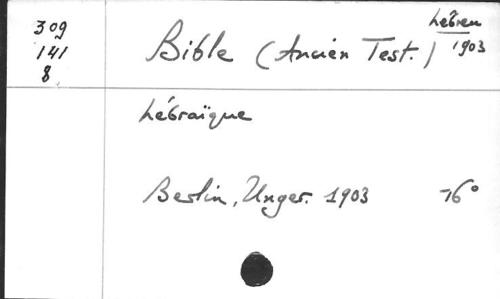 309
141
8
Bible (Ancien Test.)
hébreu
1903
hébraïque
Berlin, Unger. 1903 16°